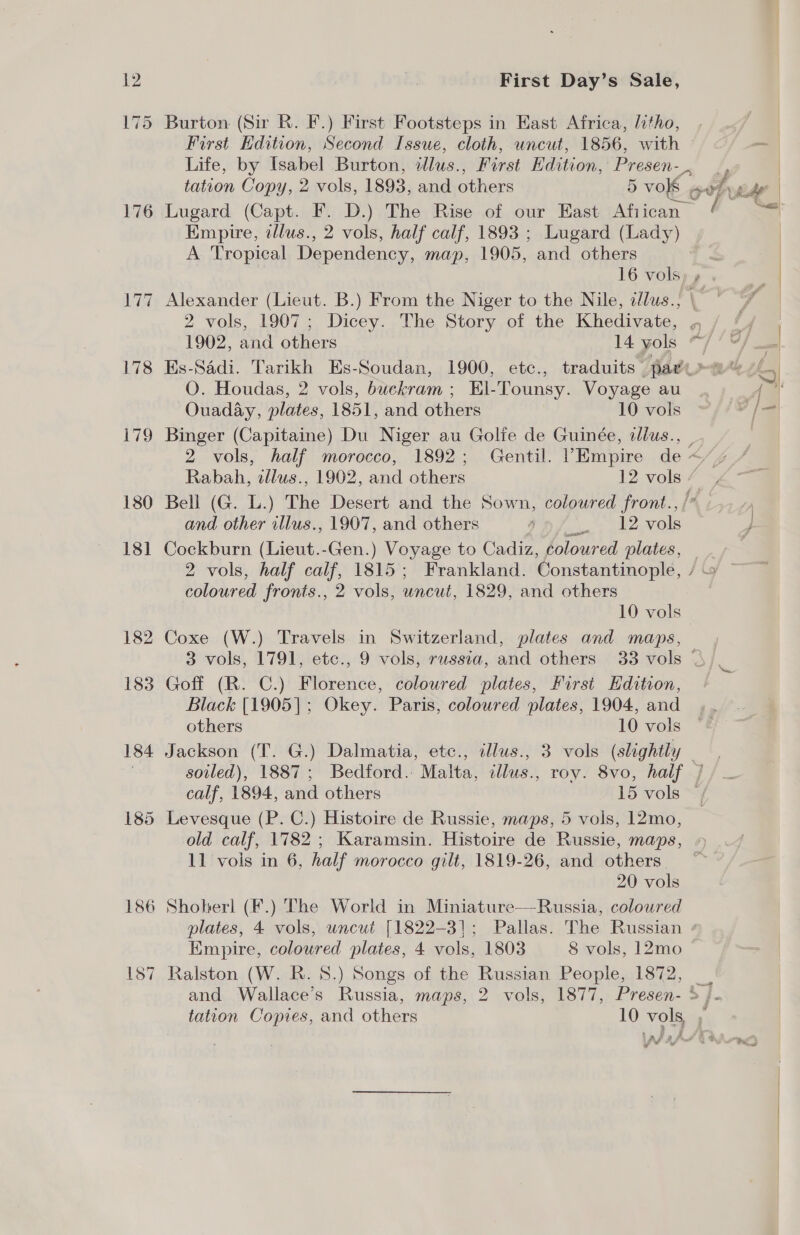 12 First Day's Sale,
175 Burton (Sir R. F.) First Footsteps in East Africa, litho,
First Edition, Second Issue, cloth, uncut, 1856, with
Life, by Isabel Burton, illus., First Edition, Presen-
tation Copy, 2 vols, 1893, and others 5 vols
176 Lugard (Capt. F. D.) The Rise of our East African
Empire, illus., 2 vols, half calf, 1893 ; Lugard (Lady)
A Tropical Dependency, map, 1905, and others
16 vols
177 Alexander (Lieut. B.) From the Niger to the Nile, illus.,
2 vols, 1907 ; Dicey. The Story of the Khedivate,
1902, and others 14 vols
178 Es-Sâdi. Tarikh Es-Soudan, 1900, etc., traduits par
O. Houdas, 2 vols, buckram ; El-Tounsy. Voyage au
Ouadây, plates, 1851, and others 10 vols
179 Binger (Capitaine) Du Niger au Golfe de Guinée, illus.,
2 vols, half morocco, 1892 ; Gentil. l'Empire de
Rabah, illus., 1902, and others 12 vols
180 Bell (G. L.) The Desert and the Sown, coloured front.,
and other illus., 1907, and others 12 vols
181 Cockburn (Lieut.-Gen.) Voyage to Cadiz, coloured plates,
2 vols, half calf, 1815 ; Frankland. Constantinople,
coloured fronts., 2 vols, uncut, 1829, and others
10 vols
182 Coxe (W.) Travels in Switzerland, plates and maps,
3 vols, 1791, etc., 9 vols, russia, and others 33 vols
183 Goff (R. C.) Florence, coloured plates, First Edition,
Black [1905] ; Okey. Paris, coloured plates, 1904, and
others 10 vols
184 Jackson (T. G.) Dalmatia, etc., illus., 3 vols (slightly
soiled), 1887 ; Bedford. Malta, illus., roy. 8vo, half
calf, 1894, and others 15 vols
185 Levesque (P. C.) Histoire de Russie, maps, 5 vols, 12mo,
old calf, 1782 ; Karamsin. Histoire de Russie, maps,
11 vols in 6, half morocco gilt, 1819-26, and others
20 vols
186 Shoberl (F.) The World in Miniature—Russia, coloured
plates, 4 vols, uncut [1822-3] ; Pallas. The Russian
Empire, coloured plates, 4 vols, 1803 8 vols, 12mo
187 Ralston (W. R. S.) Songs of the Russian People, 1872,
and Wallace's Russia, maps, 2 vols, 1877, Presen-
tation Copies, and others 10 vols